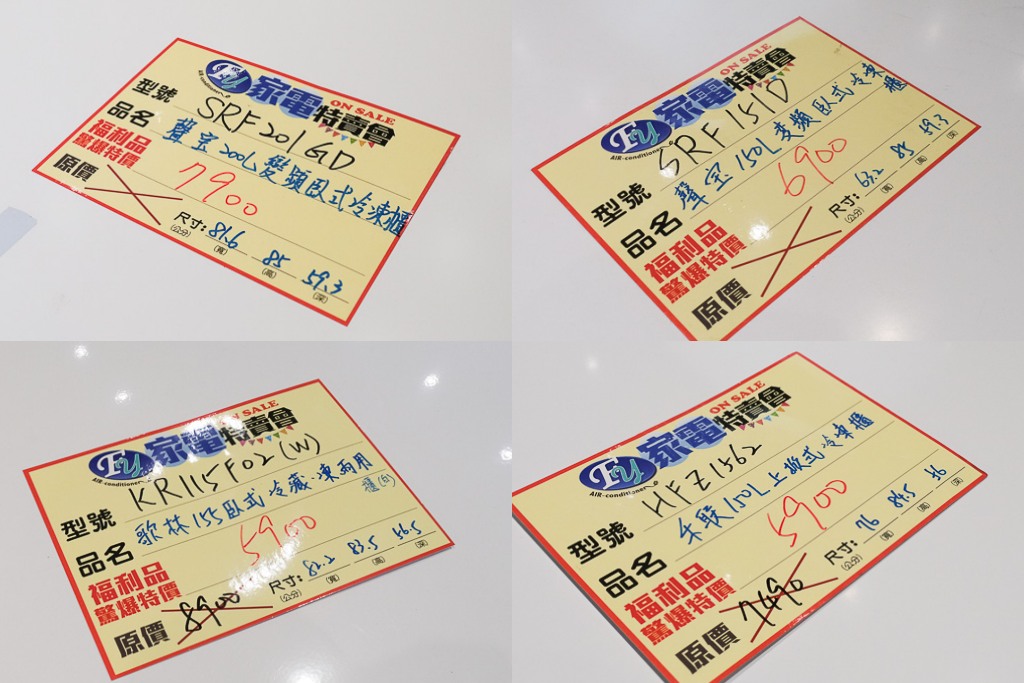 FY 家電特賣會
AIR-conditioner
ON SALE
型號 SRF201GD
品名 聲宝200L變頻臥式冷凍櫃
福利品
驚爆特價 7900
原價
尺寸: 81.6 85 59.3
(公分) (寬) (高) (深)
FY 家電特賣會
AIR-conditioner
ON SALE
型號 SRF151D
品名 聲宝150L变頻臥式冷凍櫃
福利品
驚爆特價 6900
原價
尺寸: 63.2 85 59.3
(公分) (寬) (高) (深)
FY 家電特賣會
AIR-conditioner
ON SALE
型號 KR115F02(W)
品名 歌林155臥式冷藏.凍兩用櫃(白)
福利品
驚爆特價 5900
原價 8900
尺寸: 62.2 83.5 56.5
(公分) (寬) (高) (深)
FY 家電特賣會
AIR-conditioner
ON SALE
型號 HFZ1562
品名 禾聯150L上掀式冷凍櫃
福利品
驚爆特價 5900
原價 7490
尺寸: 76 84.5 56
(公分) (寬) (高) (深)